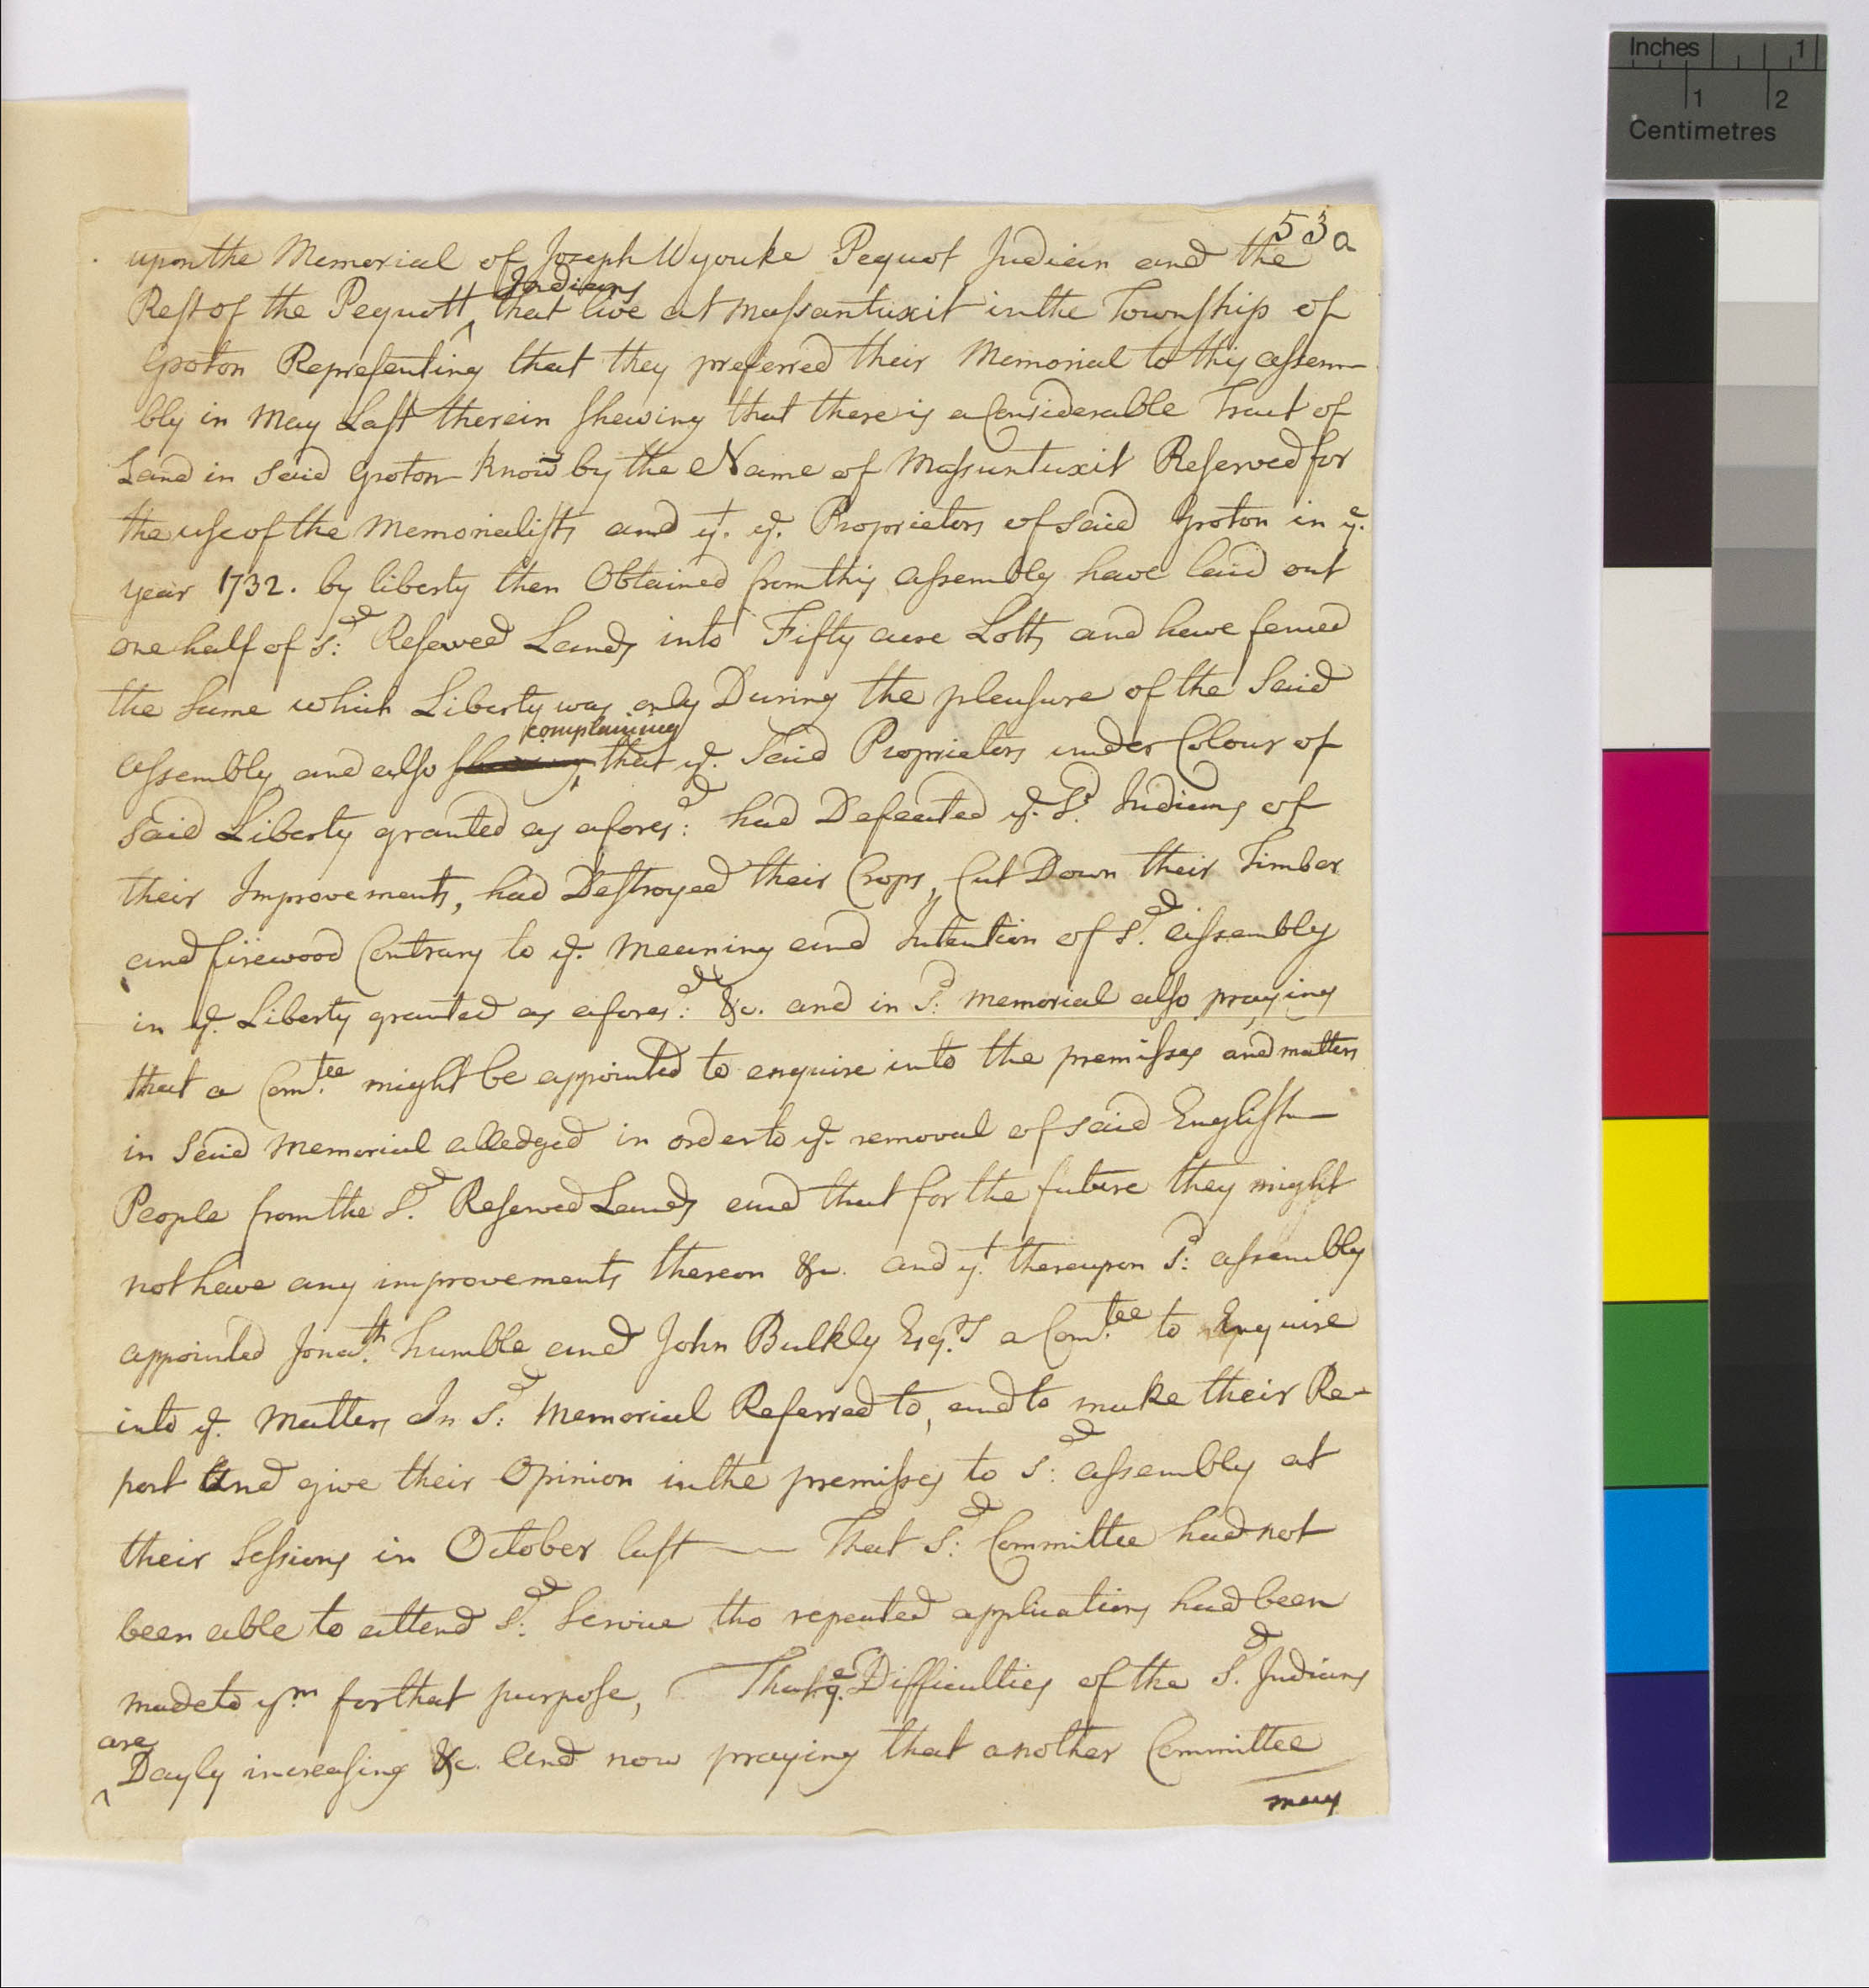 Inches 1
1 2
Centimetres
53a
upon the Memorial of Joseph Wyouke Pequot Indian and the
Indians
Rest of the Pequott ^ that live at Massantuxit in the Township of
Groton Representing that they preferred their Memorial to this assem-
bly in May Last therein Shewing that there is a Considerable Tract of
Land in Said Groton Know̄ by the Name of Massuntuxit Reserved for
the use of the Memorialists and yt. ye. Proprietors of said Groton in ye.
year 1732. by liberty then Obtained from this assembly have laid out
one half of sd: Reserved Lands into Fifty acre Lotts and have fenced
the Same which Liberty was only During the pleasure of the Said
complaining
assembly and also ^ that ye. Said Proprietors under Colour of
said Liberty granted as aforesd: had Defeated ye. Sd. Indians of
their Improvements, had Destroyed their Crops, Cut Down their Timber
and firewood Contrary to ye. Meaning and Intention of Sd. assembly
in ye. Liberty granted as aforesd: &c. and in Sd: memorial also praying
that a Comtee. might be appointed to enquire into the premisses and matters
in Said Memorial alledged in order to ye. removal of said English
People from the Sd. Reserved Lands and that for the future they might
not have any improvements thereon &c. and yt. thereupon Sd: assembly
appointed Jonath. humble and John Bulkly Esqrs a Comtee. to Enquire
into ye. Matters In Sd: Memorial Referred to, and to make their Re-
port And give their Opinion in the premisses to Sd: assembly at
their Sessions in October last — That Sd: Committee had not
been able to attend Sd: Service tho repeated applications had been
made to ym. for that purpose, That ye. Difficulties of the Sd. Indians
are
^ Dayly increasing &c. And now praying that another Committee
may